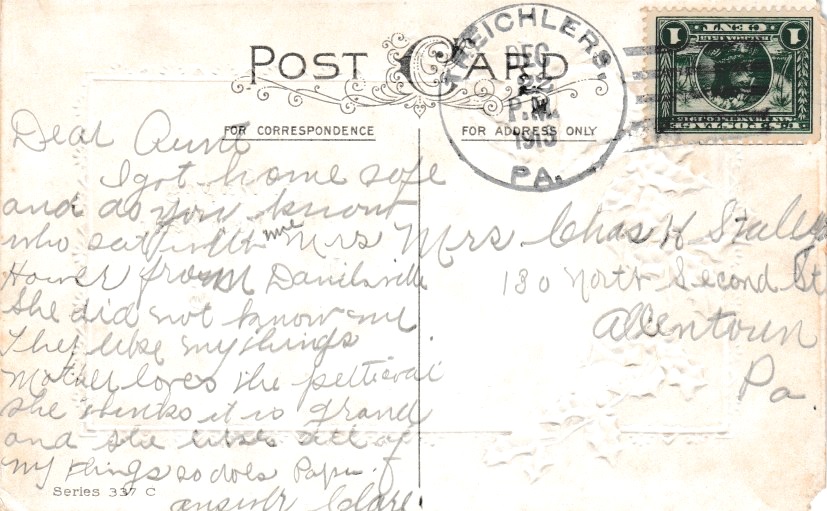 POST CARD
TREICHLERS,
DEC
22
P.M.
1913
PA.
1 CENT 1
U.S. POSTAGE
SAN FRANCISCO 1915
FOR CORRESPONDENCE
FOR ADDRESS ONLY
Dear Aunt
I got home safe
and do you know
who sat with me Mrs
Hower from Danielsville
She did not know me
They like my things
Mother loves the petticoat
she thinks it is grand
and she likes all of
my things so does Papa.
answer Clare
Mrs Chas H
130 North Second St
Allentown
Pa
Series 337 C